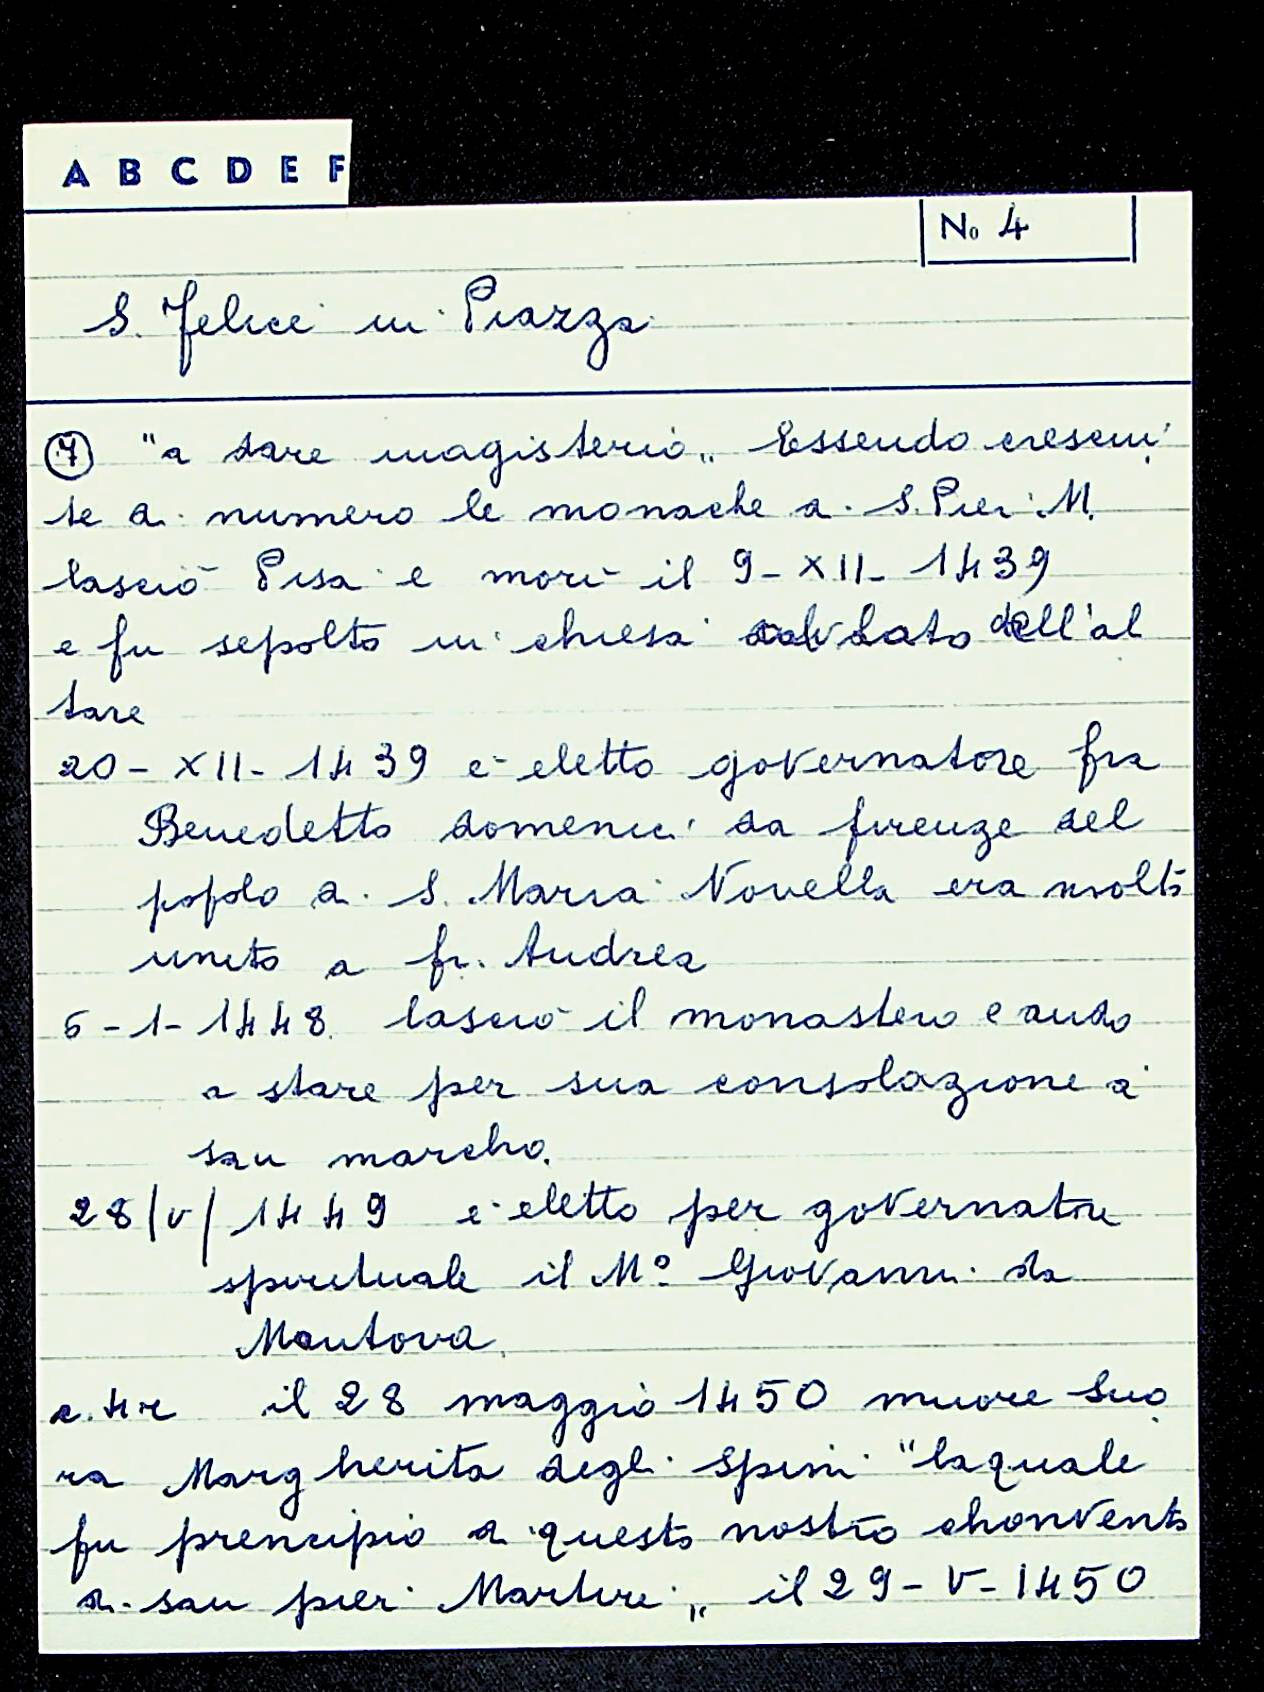 A B C D E F
No 4
S. Felice in Piazza
7 "a dare magisterio„ Essendo cresciu
te di numero le monache di S. Pier M.
lasciò Pisa e morì il 9-XII-1439
e fu sepolto in chiesa dal lato dell'al
tare
20-XII-1439 è eletto governatore fra
Benedetto domenici da firenze del
popolo di S. Maria Novella era molto
unito a fr. Andrea
6-1-1448. lasciò il monastero e andò
a stare per sua consolazione a
san marcho.
28/V/1449 è eletto per governatore
spirituale il Mº Giovanni da
Mantova.
c. 4r il 28 maggio 1450 muore Suo
ra Margherita degli Spini "la quale
fu prencipio di questo nostro chonvento
di san pier Martire„ il 29-V-1450